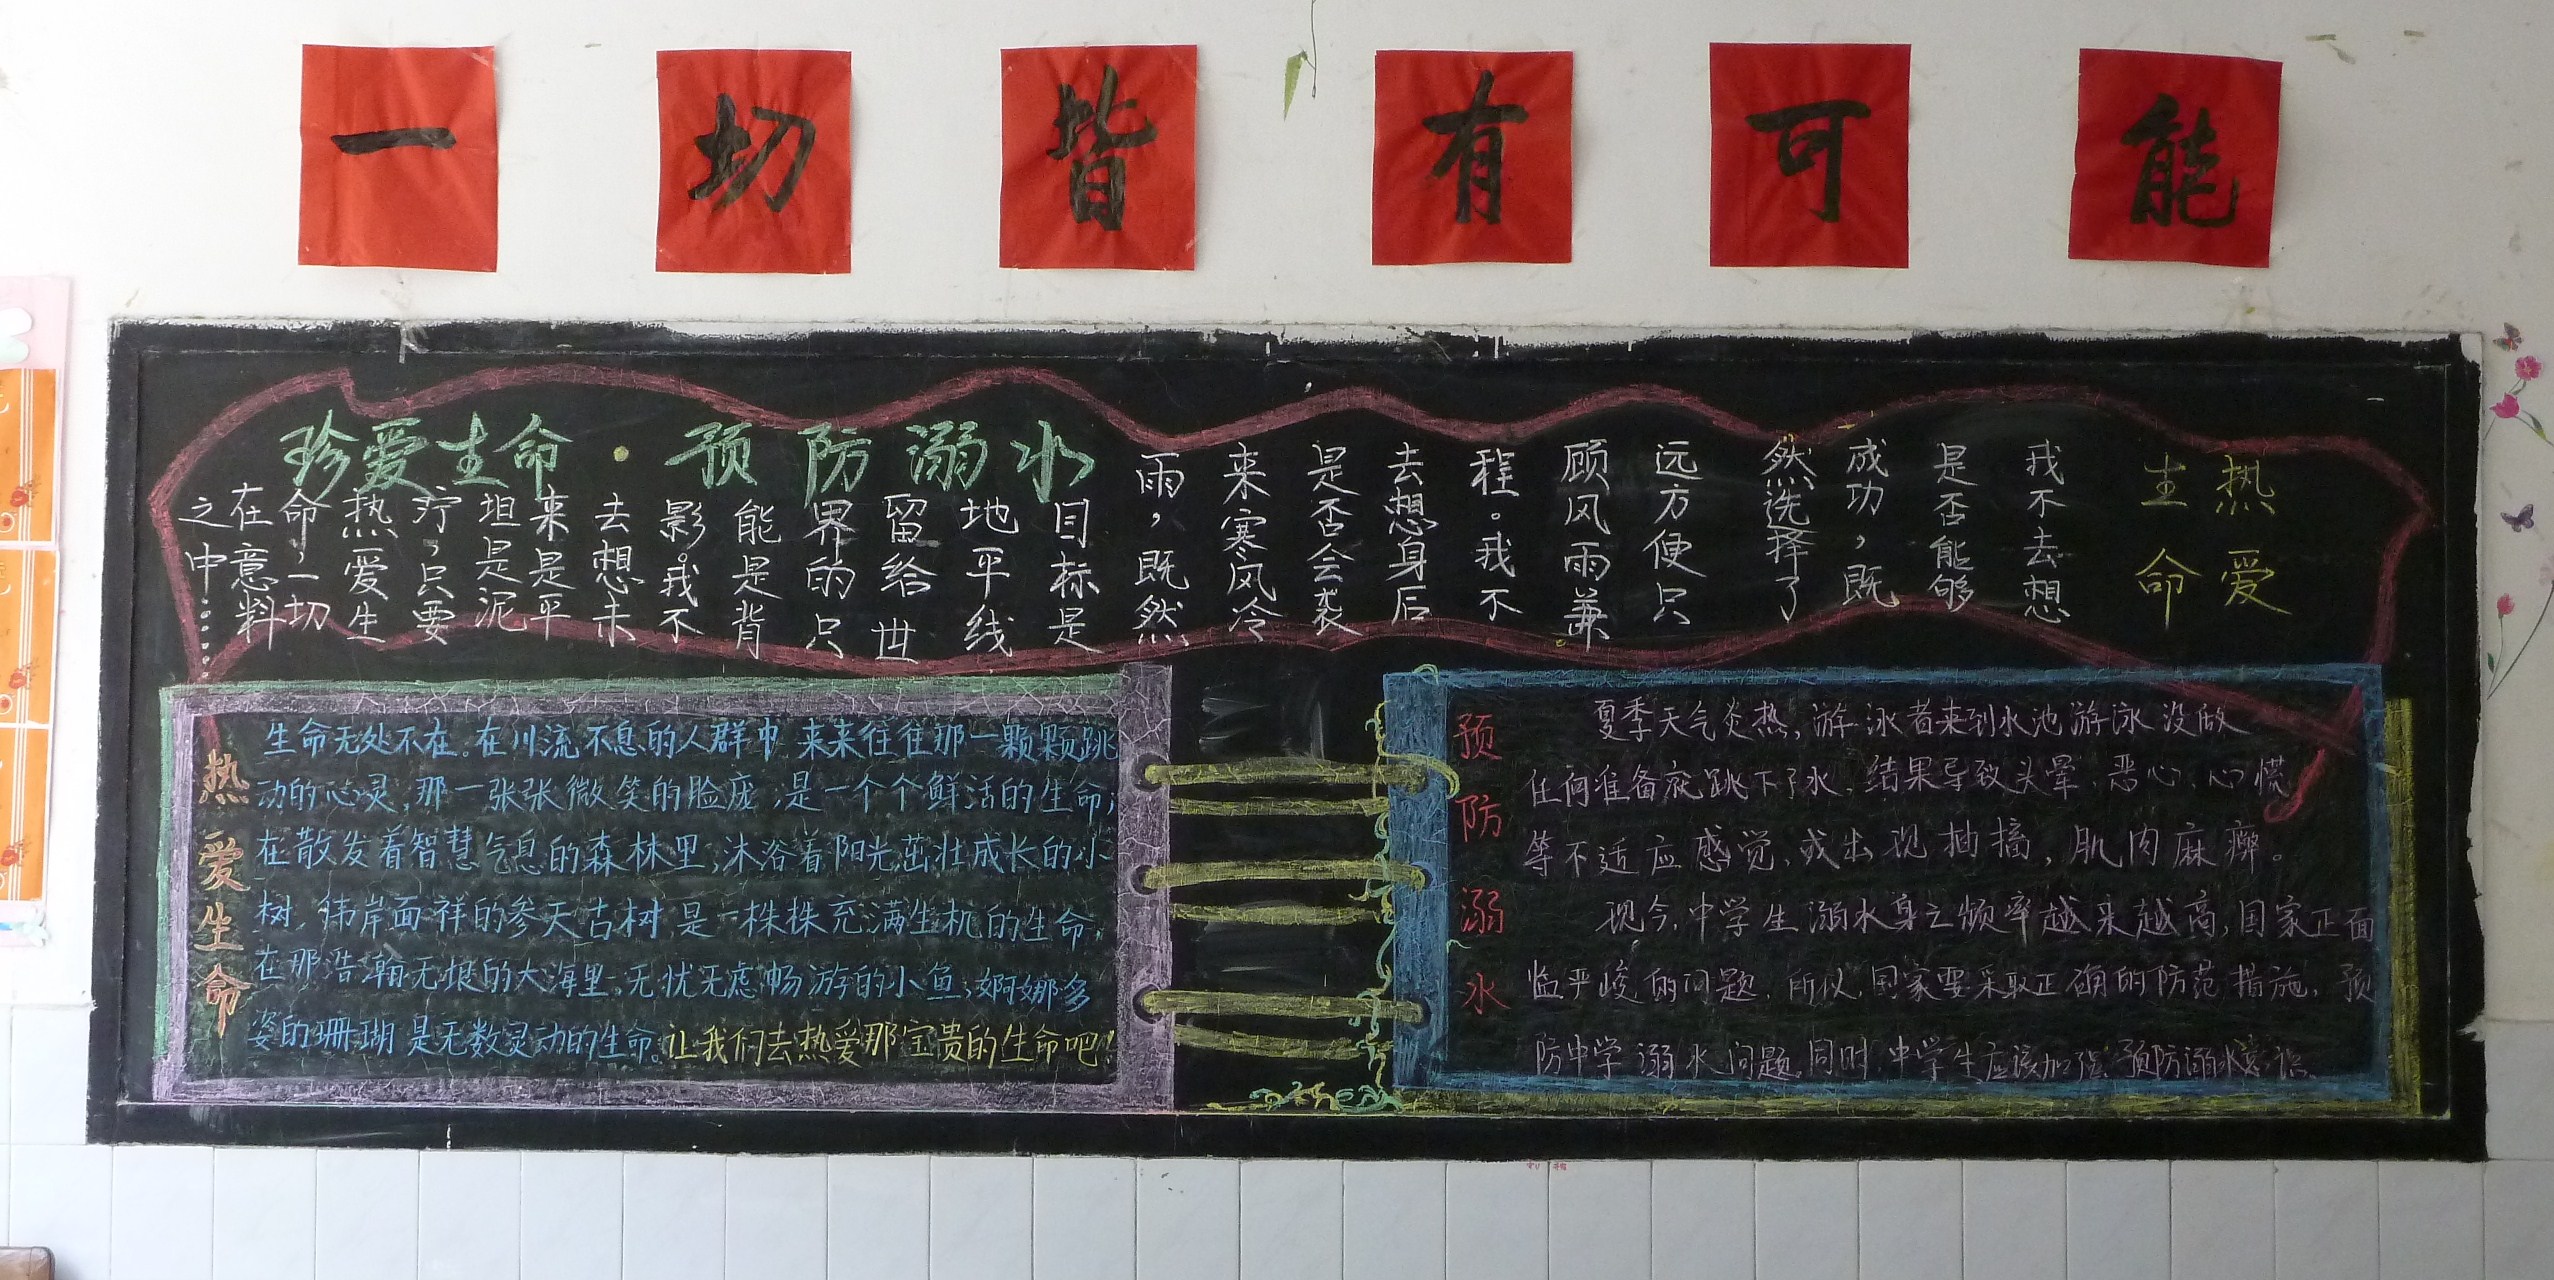 一切皆有可能
珍爱生命·预防溺水
热爱
生命
我不去想
是否能够
成功，既
然选择了
远方便只
顾风雨兼
程。我不
去想身后
是否会袭
来寒风冷
雨，既然
目标是
地平线
留给世
界的只
能是背
影。我不
去想未
来是平
坦是泥
泞，只要
热爱生
命，一切
在意料
之中……
热爱生命
生命无处不在。在川流不息的人群中 来来往往那一颗颗跳
动的心灵，那一张张微笑的脸庞，是一个个鲜活的生命；
在散发着智慧气息的森林里，沐浴着阳光茁壮成长的小
树，伟岸面祥的参天古树 是一株株充满生机的生命，
在那浩翰无垠的大海里，无忧无虑畅游的小鱼；婀娜多
姿的珊瑚 是无数灵动的生命。让我们去热爱那宝贵的生命吧！
预防溺水
夏季天气炎热，游泳者来到水池游泳 没做
任何准备就跳下了水，结果导致头晕，恶心，心慌
等不适应感觉，或出现抽搐，肌肉麻痹。
现今，中学生溺水身亡频率越来越高，国家正面
监严峻的问题，所以，国家要采取正确的防范措施，预
防中学溺水问题。同时，中学生应该加强预防溺水意识。